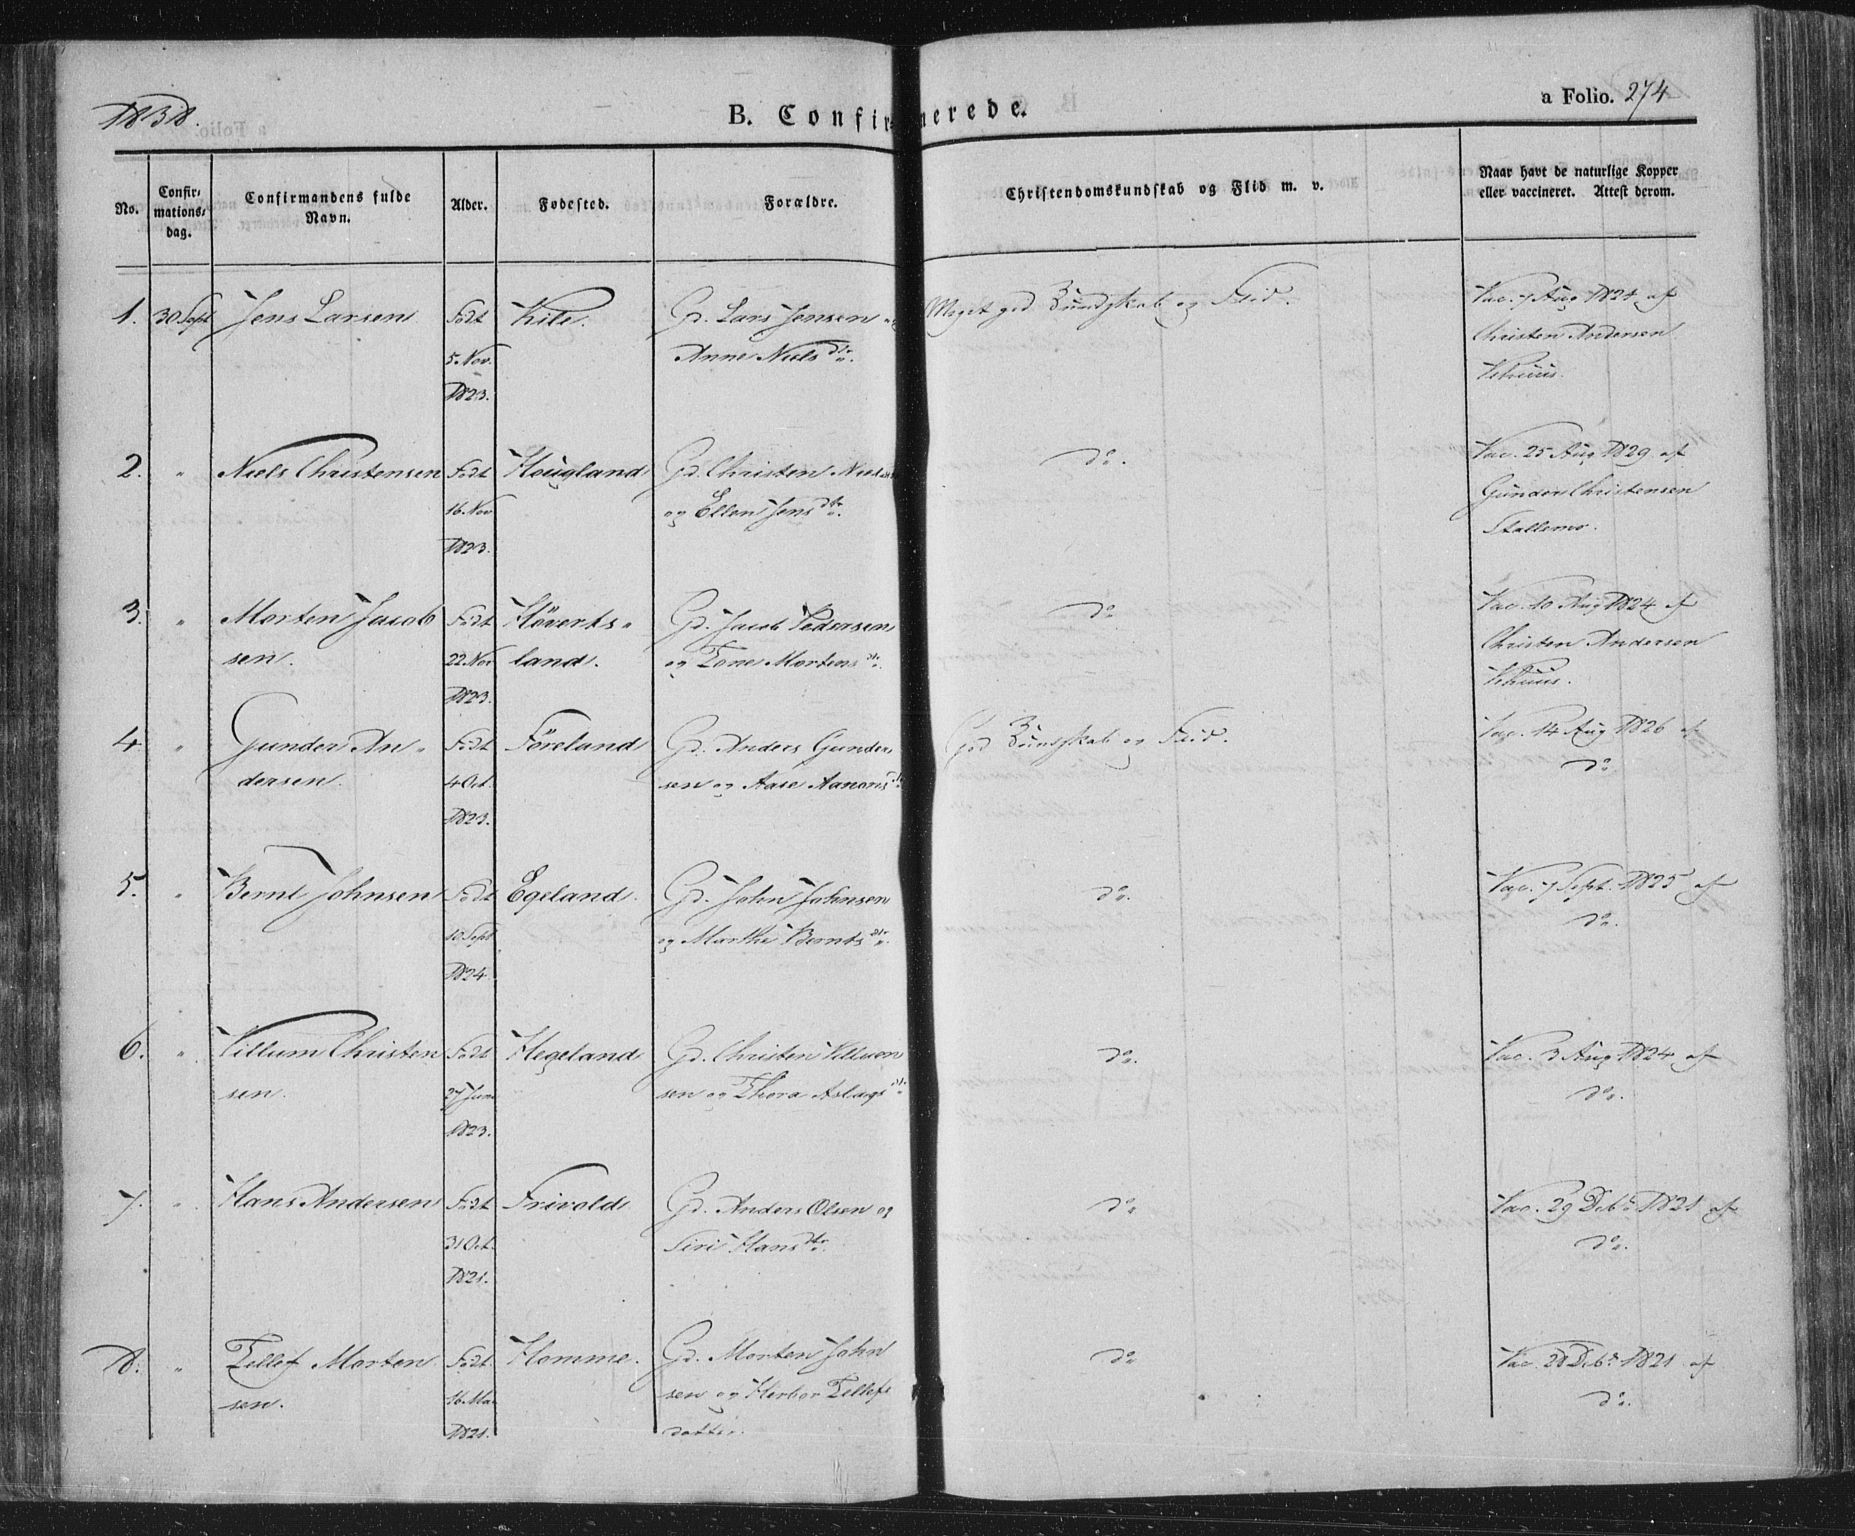 1838.
B. Confirmerede.
a Folio. 274
No.
Confir-
mations-
dag.
Confirmandens fulde
Navn.
Alder.
Fødested.
Forældre.
Christendomskundskab og Flid m. v.
Naar havt de naturlige Kopper
eller vaccineret. Attest derom.
1. 30 Sept Jens Larsen Født Kile. Gd. Lars Jensen og Meget god Kundskab og Flid. Vac. 7 Aug 1824 af
5 Nov. Anne Niels dtr. Christen Andersen
1823. Vehuus.
2. " Niels Christensen Født Hougland Gd. Christen Nielsen do. Vac. 25 Aug 1829 af
16 Nov og Ellen Jens dtr. Gunder Christensen
1823. Stallemo.
3. " Morten Jacob Født Høverts- Gd. Jacob Pedersen do Vac. 10 Aug 1824 af
sen. 22 Nov land. og Tone Mortens dtr. Christen Andersen
1823. Vehuus.
4 " Gunder An- Født Føreland Gd. Anders Gunder God Kundskab og Flid. Vac. 14 Aug 1826 af
dersen. 4 Oct. sen og Aase Aanons dtr. do
1823.
5. " Bernt Johnsen Født Egeland. Gd. John Johnsen do. Vac. 7 Sept. 1825 af
10 Sept og Marthe Bernts dtr. do.
1824
6. " Villum Christen Født Hegeland Gd. Christen Villum do. Vac. 3 Aug 1824 af
sen. 27 Jun sen og Thora Aslags dtr. do.
1823.
7. " Hans Andersen Født Frivold Gd. Anders Olsen og do Vac. 29 Debr 1821 af
31 Oct. Siri Hans dtr. do.
1821.
8. " Tellef Morten Født Homme. Gd. Morten John do Vac. 28 Debr 1821 af
sen. 16 Mai sen og Herbor Tellefs do.
1821. datter.